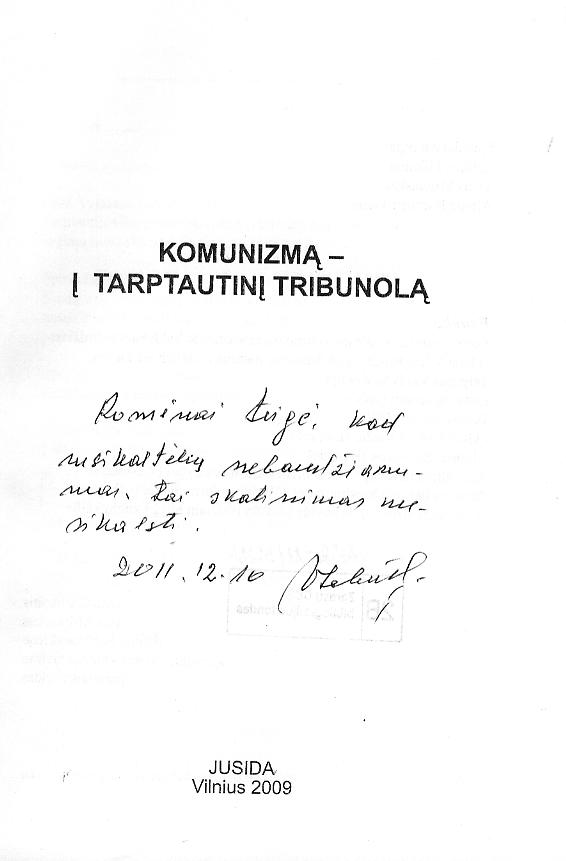 KOMUNIZMĄ –
Į TARPTAUTINĮ TRIBUNOLĄ
Romėnai teigė, kad
nusikaltėlių nebaudžiamu-
mas, tai skatinimas nu-
sikalsti.
2011.12.10
JUSIDA
Vilnius 2009